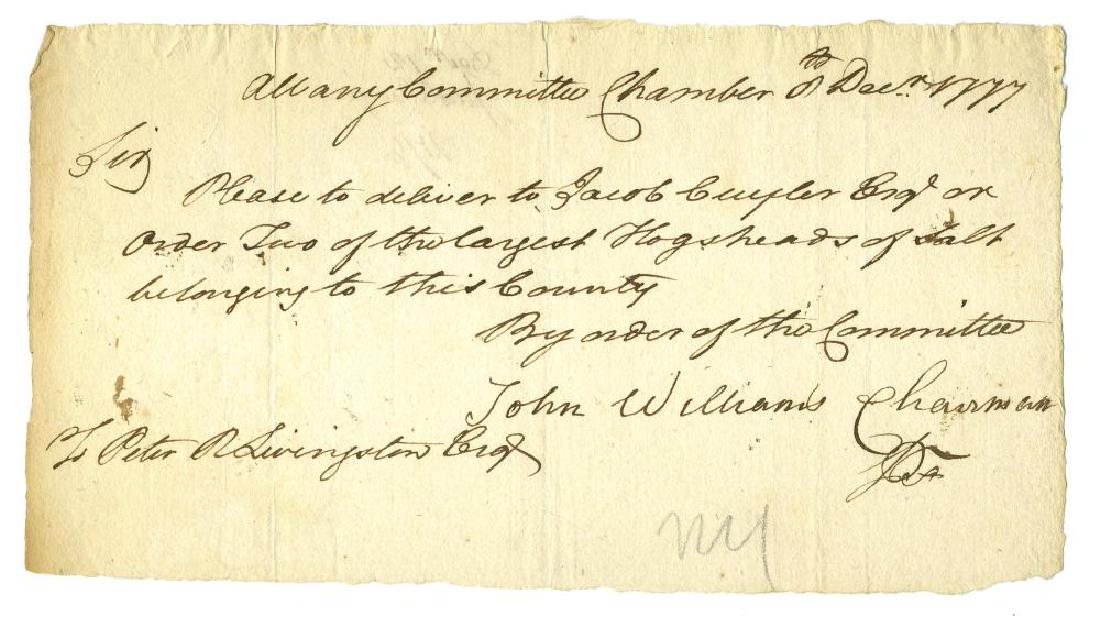 Albany Committee Chamber 8th Decr. 1777
Sir
Please to deliver to Jacob Cuyler Esqr or
Order Two of the largest Hogsheads of Salt
belonging to this County
By order of the Committee
John Williams Chairman
To Peter R Livingston Esqr
NY